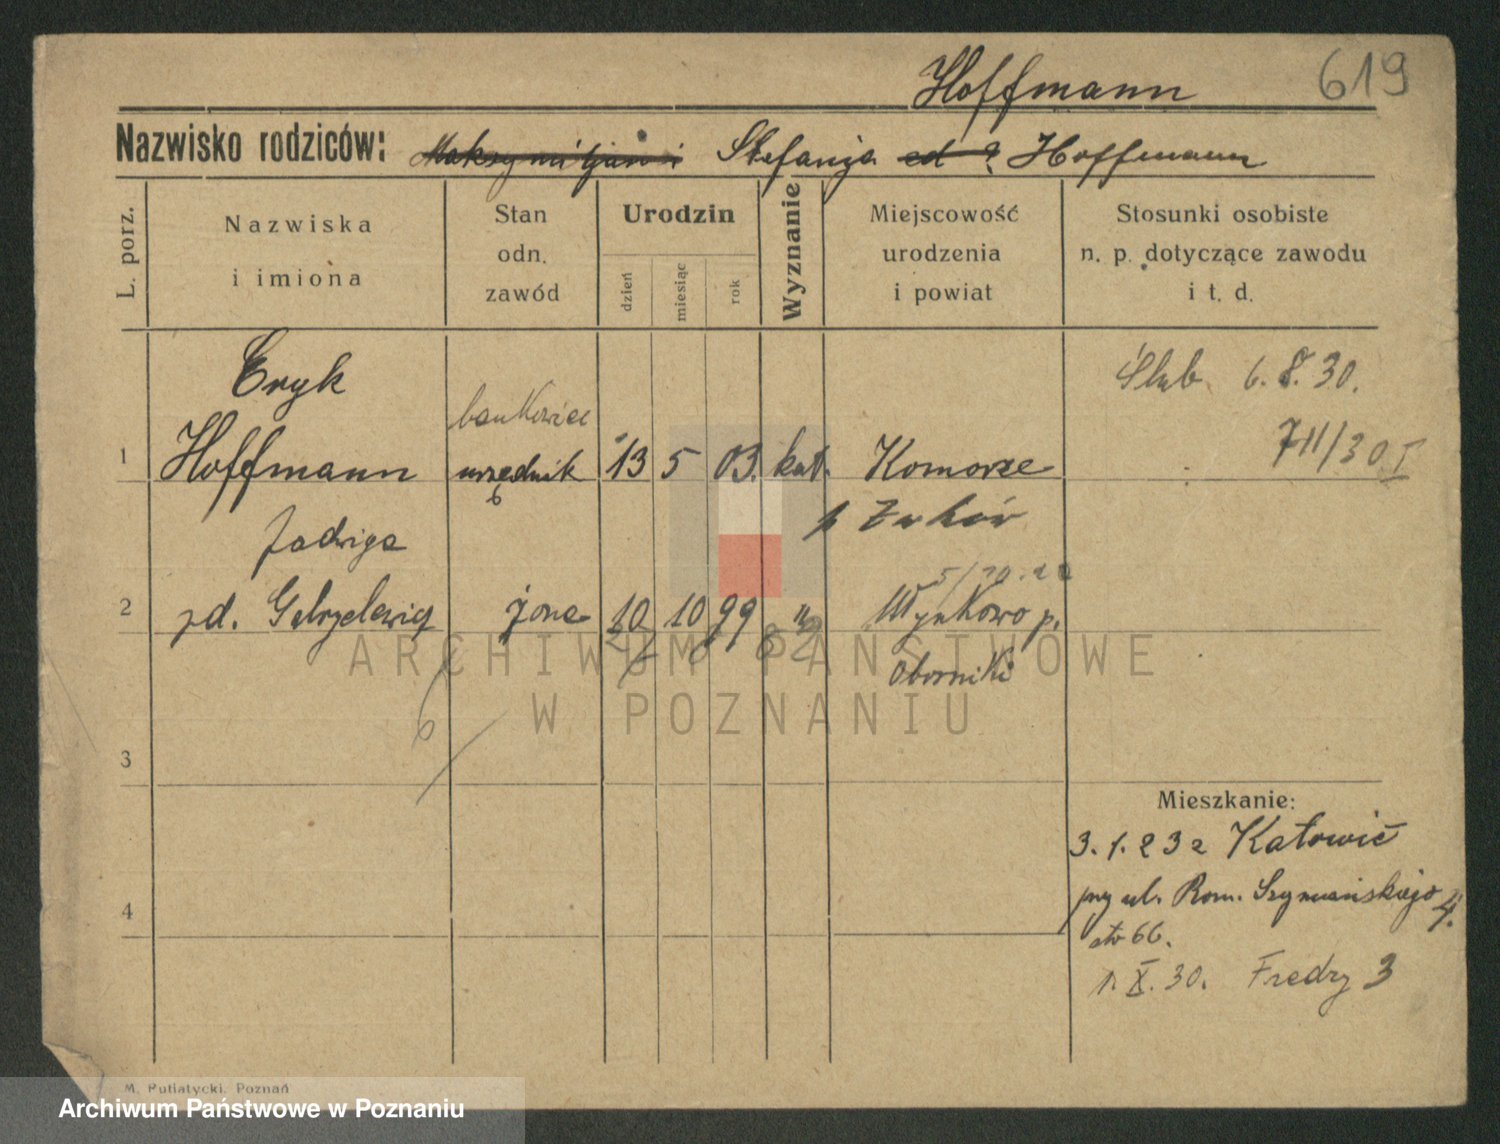 Hoffmann 619
Nazwisko rodziców: Maksymiljan i Stefanja Hoffmann
L. porz.
Nazwiska i imiona
Stan odn. zawód
Urodzin
dzień
miesiąc
rok
Wyznanie
Miejscowość urodzenia i powiat
Stosunki osobiste n. p. dotyczące zawodu i t. d.
Eryk
Ślub 6. 8. 30.
bankowiec
711/30 I
1 Hoffmann urzędnik 13 5 03. kat. Komorze
p Żuków
Jadwiga
2 zd. Gabryelewicz żona 10 10 99 " Wynkowo p.
Oborniki
3
Mieszkanie:
3. 1. 232 Katowic
przy ul. Rom. Szymańskiego 4.
4
66.
1. X. 30. Fredry 3
ARCHIWUM PAŃSTWOWE
W POZNANIU
M. Putiatycki, Poznań
Archiwum Państwowe w Poznaniu